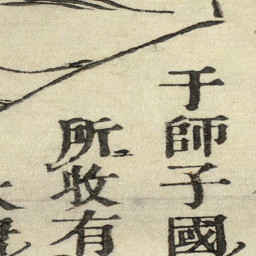 于師子國
所收有